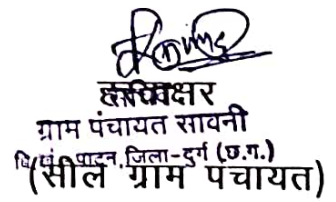 हस्ताक्षर
सचिव
ग्राम पंचायत सावनी
वि.खं. पाटन, जिला-दुर्ग (छ.ग.)
(सील ग्राम पंचायत)